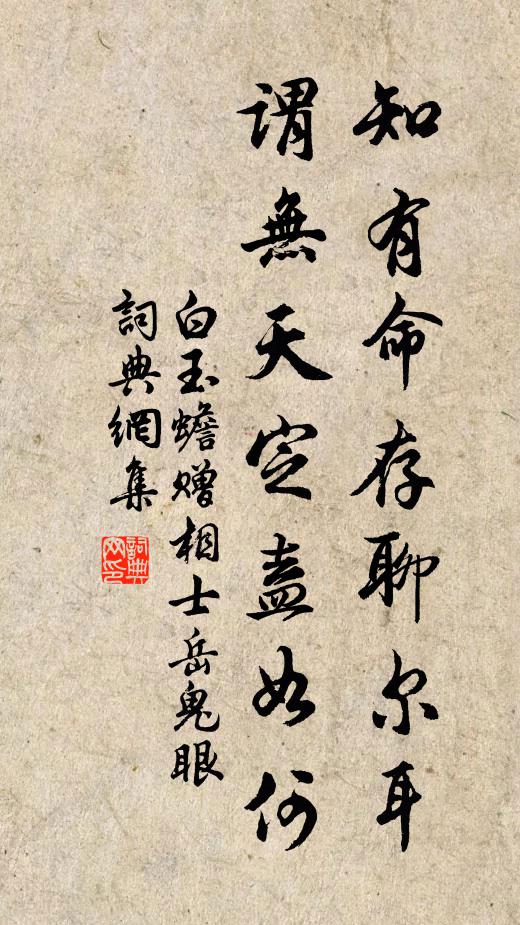 知有命存聊尔耳
謂無天定盍如何
白玉蟾赠相士岳鬼眼
詞典網集
詞典
网印